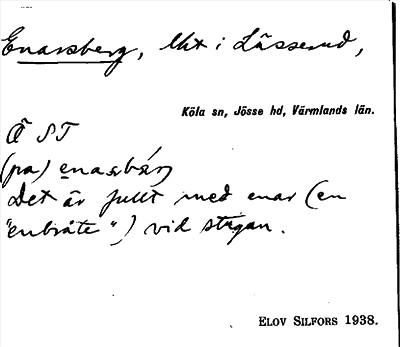 Enarsberg, Utt i Lässerud,
Köla sn, Jösse hd, Värmlands län.
Ä ST
(pa) enasbärj
Det är fullt med enar (en
"enbråte") vid stigan.
ELOV SILFORS 1938.